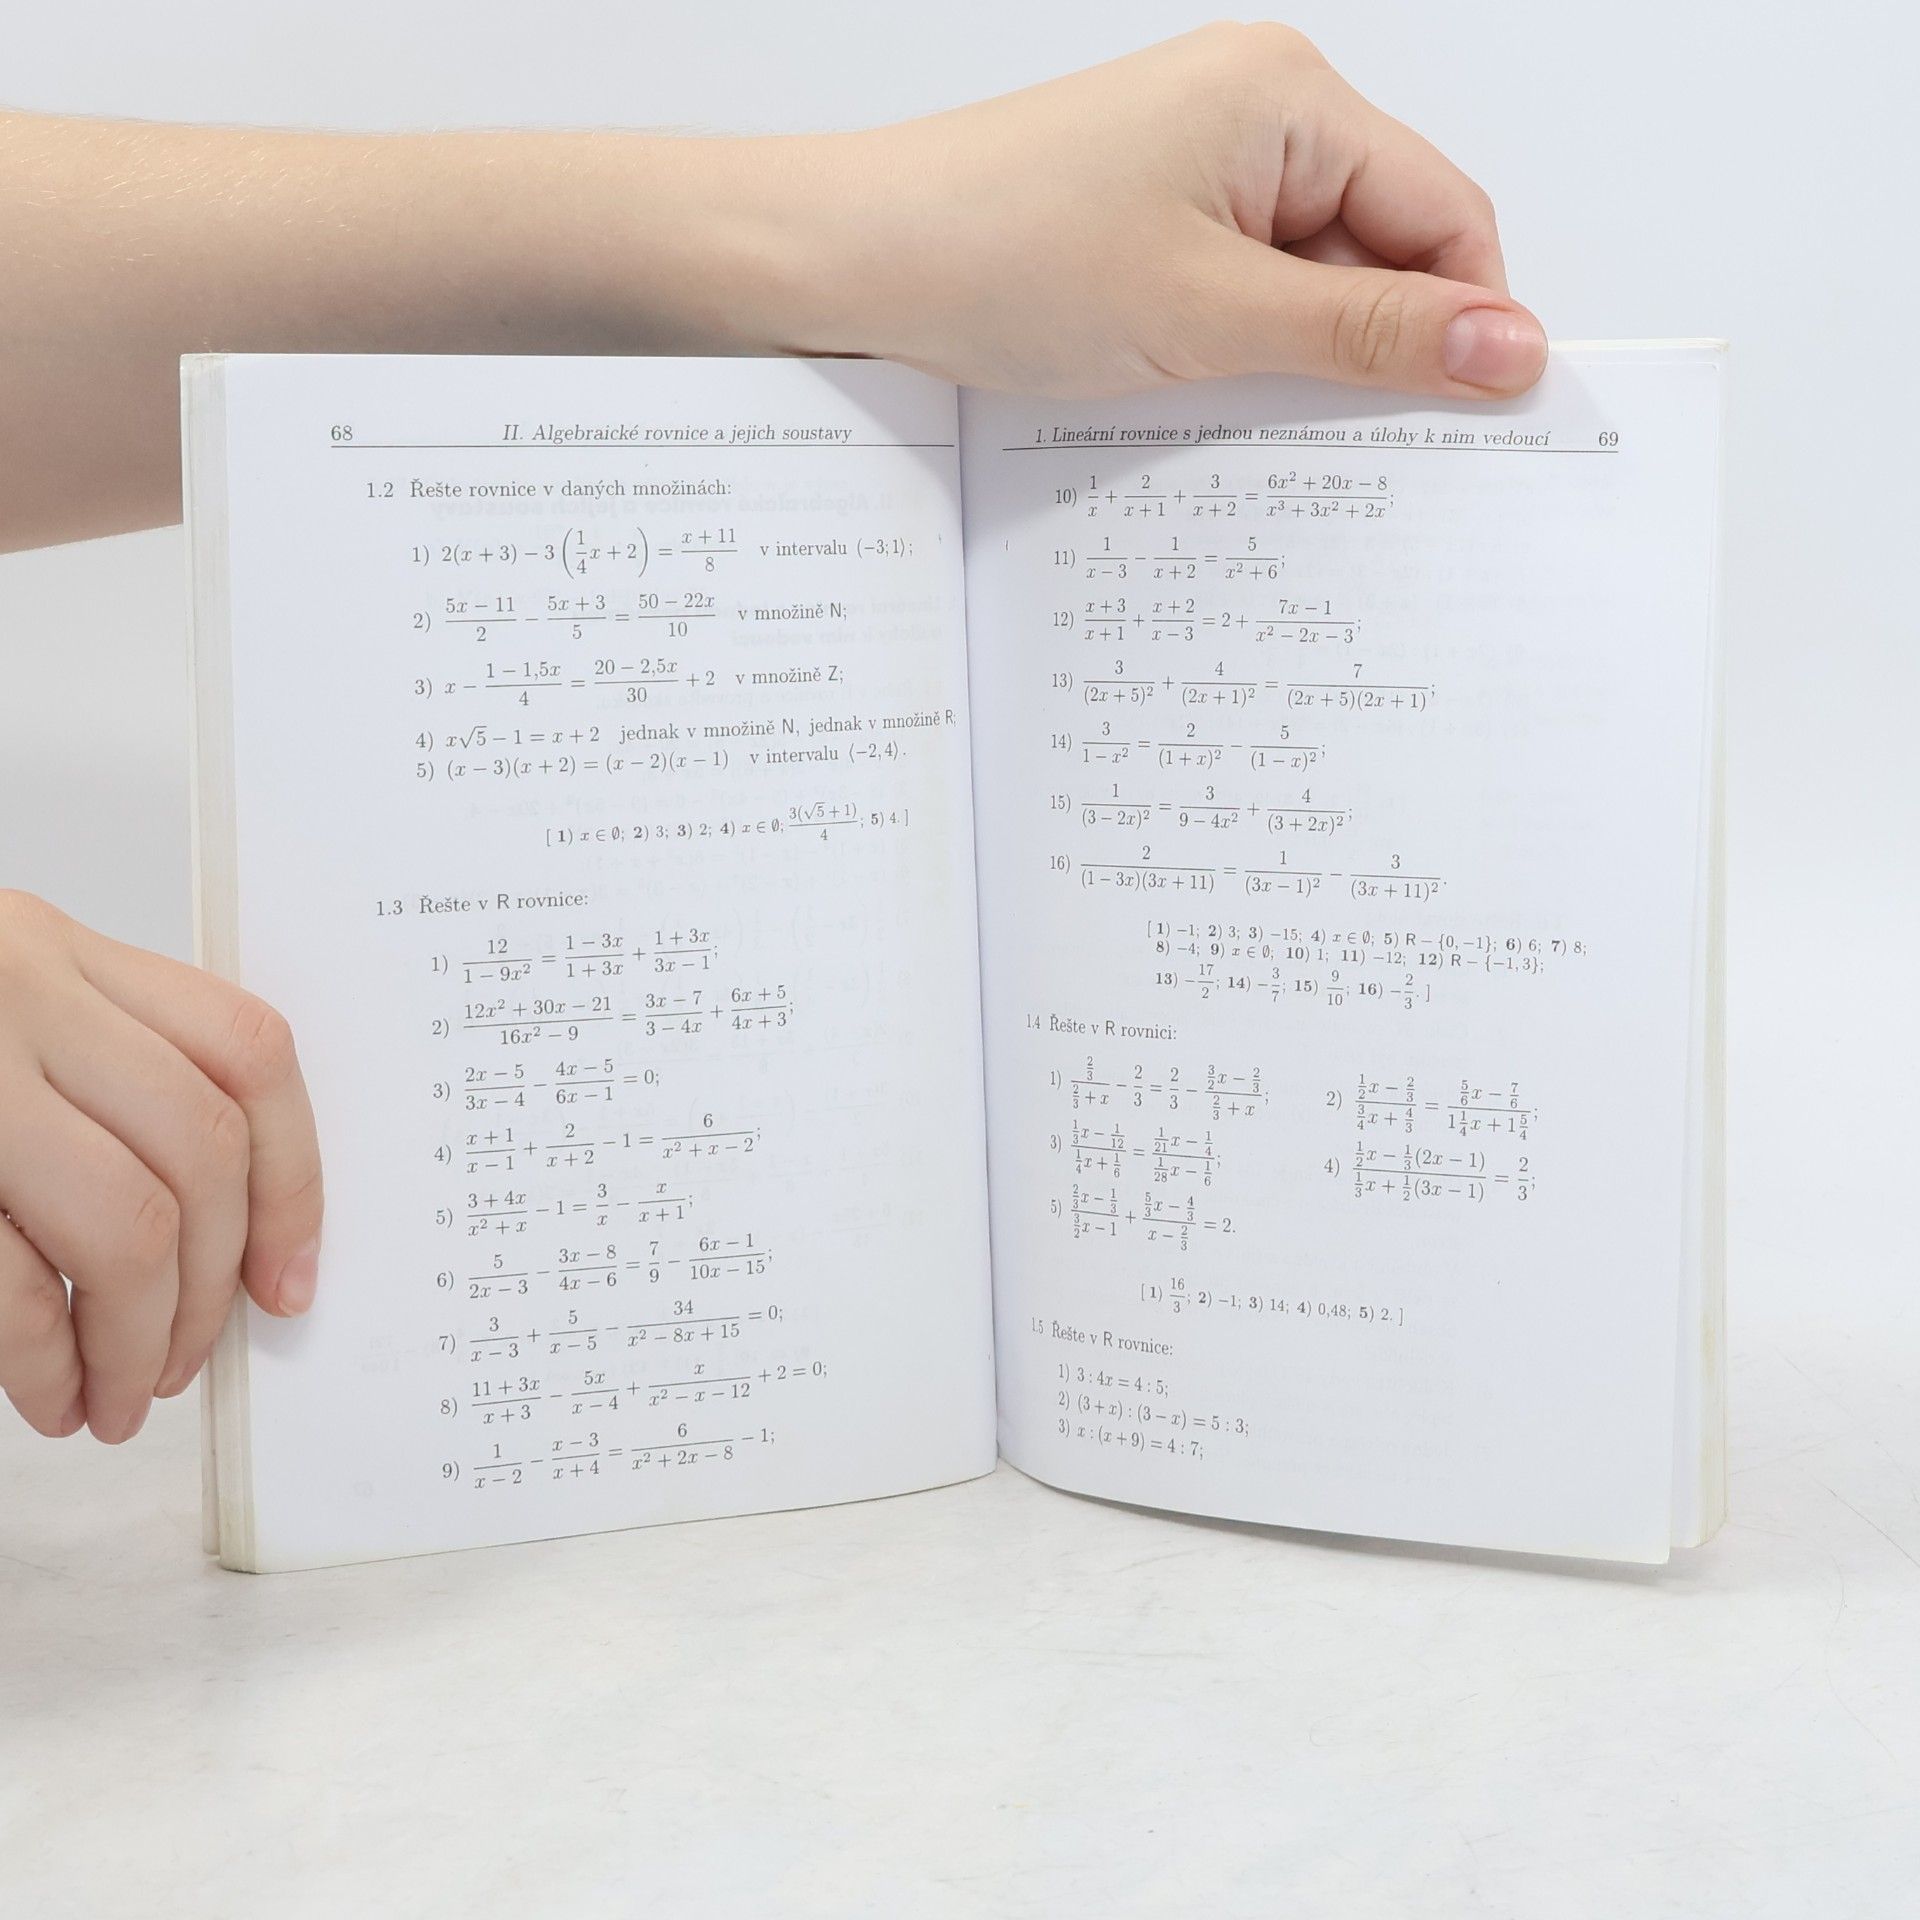 68 II. Algebraické rovnice a jejich soustavy
1.2 Řešte rovnice v daných množinách:
1) 2(x + 3) − 3 (1/4 x + 2) = (x + 11)/8 v intervalu (−3; 1⟩;
2) (5x − 11)/2 − (5x + 3)/5 = (50 − 22x)/10 v množině N;
3) x − (1 − 1,5x)/4 = (20 − 2,5x)/30 + 2 v množině Z;
4) x√5 − 1 = x + 2 jednak v množině N, jednak v množině R;
5) (x − 3)(x + 2) = (x − 2)(x − 1) v intervalu ⟨−2, 4⟩.
[ 1) x ∈ ∅; 2) 3; 3) 2; 4) x ∈ ∅; 3(√5 + 1)/4; 5) 4. ]
1.3 Řešte v R rovnice:
1) 12/(1 − 9x²) = (1 − 3x)/(1 + 3x) + (1 + 3x)/(3x − 1);
2) (12x² + 30x − 21)/(16x² − 9) = (3x − 7)/(3 − 4x) + (6x + 5)/(4x + 3);
3) (2x − 5)/(3x − 4) − (4x − 5)/(6x − 1) = 0;
4) (x + 1)/(x − 1) + 2/(x + 2) − 1 = 6/(x² + x − 2);
5) (3 + 4x)/(x² + x) − 1 = 3/x − x/(x + 1);
6) 5/(2x − 3) − (3x − 8)/(4x − 6) = 7/9 − (6x − 1)/(10x − 15);
7) 3/(x − 3) + 5/(x − 5) − 34/(x² − 8x + 15) = 0;
8) (11 + 3x)/(x + 3) − 5x/(x − 4) + x/(x² − x − 12) + 2 = 0;
9) 1/(x − 2) − (x − 3)/(x + 4) = 6/(x² + 2x − 8) − 1;
1. Lineární rovnice s jednou neznámou a úlohy k nim vedoucí 69
10) 1/x + 2/(x + 1) + 3/(x + 2) = (6x² + 20x − 8)/(x³ + 3x² + 2x);
11) 1/(x − 3) − 1/(x + 2) = 5/(x² + 6);
12) (x + 3)/(x + 1) + (x + 2)/(x − 3) = 2 + (7x − 1)/(x² − 2x − 3);
13) 3/(2x + 5)² + 4/(2x + 1)² = 7/((2x + 5)(2x + 1));
14) 3/(1 − x²) = 2/(1 + x)² − 5/(1 − x)²;
15) 1/(3 − 2x)² = 3/(9 − 4x²) + 4/(3 + 2x)²;
16) 2/((1 − 3x)(3x + 11)) = 1/(3x − 1)² − 3/(3x + 11)².
[ 1) −1; 2) 3; 3) −15; 4) x ∈ ∅; 5) R − {0, −1}; 6) 6; 7) 8;
8) −4; 9) x ∈ ∅; 10) 1; 11) −12; 12) R − {−1, 3};
13) −17/2; 14) −3/7; 15) 9/10; 16) −2/3. ]
1.4 Řešte v R rovnici:
1) (2/3)/(2/3 + x) − 2/3 = 2/3 − (3/2 x − 2/3)/(2/3 + x); 2) (1/2 x − 2/3)/(3/4 x + 4/3) = (5/6 x − 7/6)/(1 1/4 x + 1 5/4);
3) (1/3 x − 1/12)/(1/4 x + 1/6) = (1/21 x − 1/4)/(1/28 x − 1/6); 4) (1/2 x − 1/3 (2x − 1))/(1/3 x + 1/2 (3x − 1)) = 2/3;
5) (2/3 x − 1/3)/(3/2 x − 1) + (5/3 x − 4/3)/(x − 2/3) = 2.
[ 1) 16/3; 2) −1; 3) 14; 4) 0,48; 5) 2. ]
1.5 Řešte v R rovnice:
1) 3 : 4x = 4 : 5;
2) (3 + x) : (3 − x) = 5 : 3;
3) x : (x + 9) = 4 : 7;